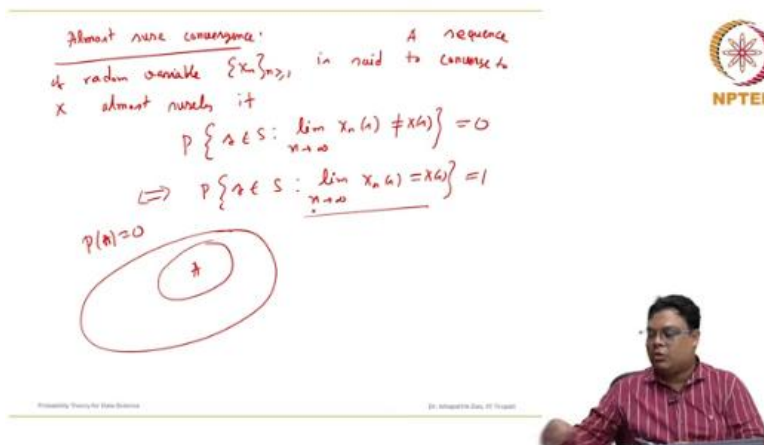 Almost sure convergence: A sequence
of radom variable {Xn}n≥1 is said to converge to
X almost surely if
P{s ∈ S : lim n→∞ Xn(s) ≠ X(s)} = 0
⇔ P{s ∈ S : lim n→∞ Xn(s) = X(s)} = 1
P(A)=0
A
NPTEL
Probability Theory for Data Science
Dr. IIT Tirupati